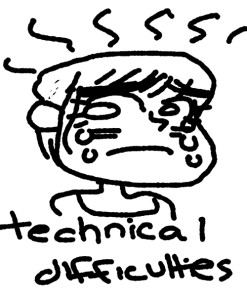 technical
difficulties